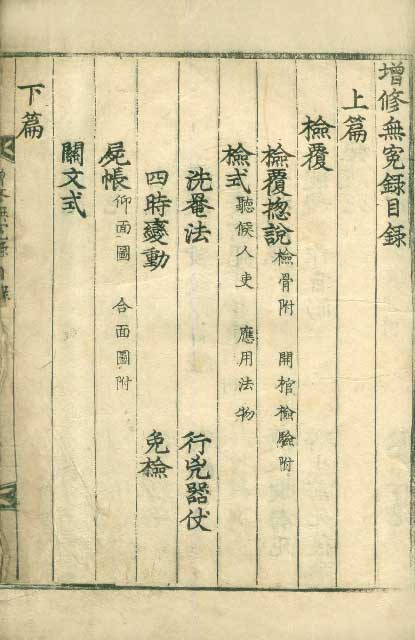 增修無冤錄目錄
上篇
檢覆
檢覆揔說 檢骨附 開棺檢驗附
檢式 聽候人吏 應用法物
洗罨法 行兇器仗
四時變動 免檢
屍帳 仰面圖 合面圖附
關文式
下篇